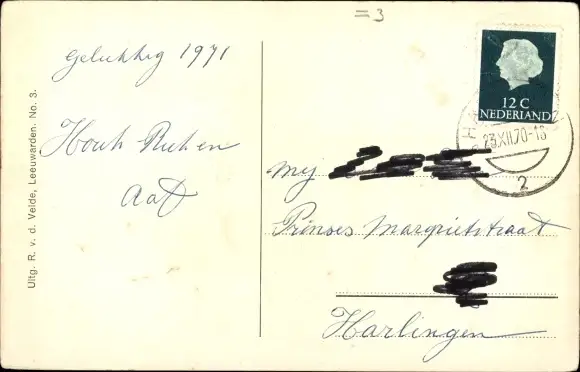 = 3
Gelukkig 1971
Aat
Uitg. R. v. d. Velde, Leeuwarden. No. 3.
12 C
NEDERLAND
23.XII.70-18
2
Mej
Prinses Margrietstraat
Harlingen